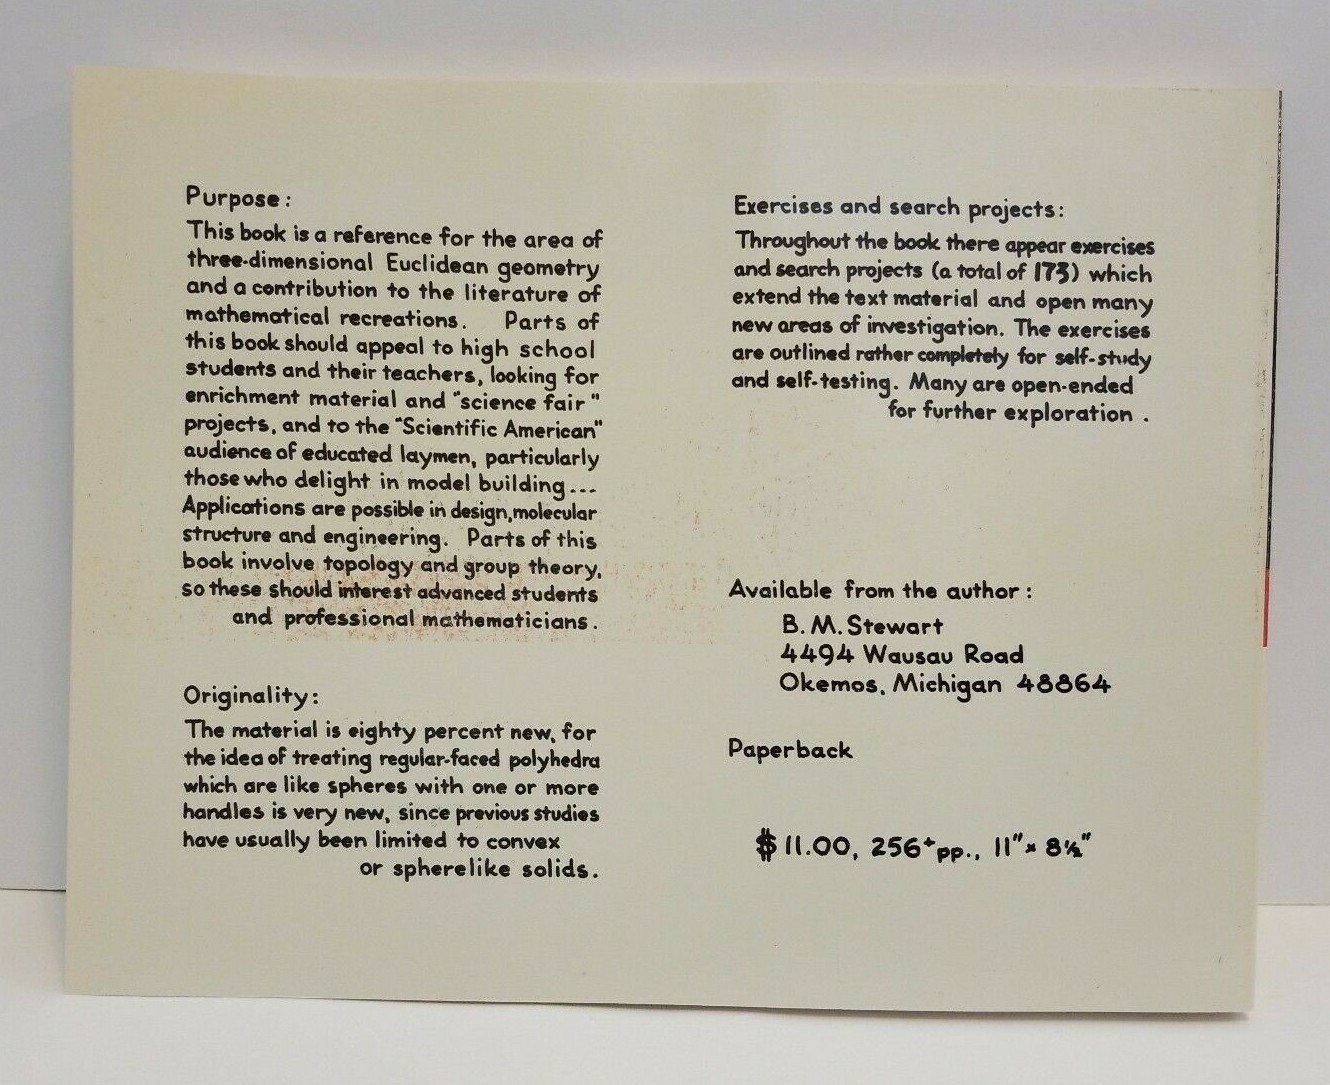 Purpose:
This book is a reference for the area of
three-dimensional Euclidean geometry
and a contribution to the literature of
mathematical recreations. Parts of
this book should appeal to high school
students and their teachers, looking for
enrichment material and "science fair"
projects, and to the "Scientific American"
audience of educated laymen, particularly
those who delight in model building...
Applications are possible in design, molecular
structure and engineering. Parts of this
book involve topology and group theory,
so these should interest advanced students
and professional mathematicians.
Originality:
The material is eighty percent new, for
the idea of treating regular-faced polyhedra
which are like spheres with one or more
handles is very new, since previous studies
have usually been limited to convex
or spherelike solids.
Exercises and search projects:
Throughout the book there appear exercises
and search projects (a total of 173) which
extend the text material and open many
new areas of investigation. The exercises
are outlined rather completely for self-study
and self-testing. Many are open-ended
for further exploration.
Available from the author:
B. M. Stewart
4494 Wausau Road
Okemos, Michigan 48864
Paperback
$11.00, 256⁺pp., 11" × 8½"